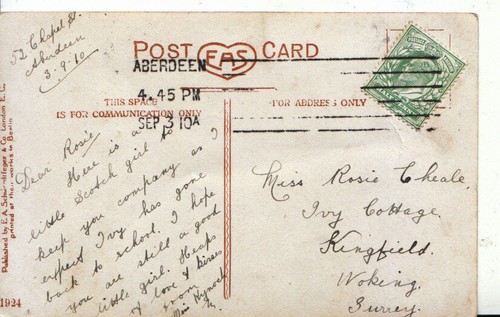 52 Chapel St.
Aberdeen
3.9.10
POST CARD
EAS
ABERDEEN
4.45 PM
SEP 3 10A
THIS SPACE
IS FOR COMMUNICATION ONLY
FOR ADDRESS ONLY
Dear Rosie
Here is a
little Scotch girl to
keep you company as I
expect Ivy has gone
back to school. I hope
you are still a good
little girl. Heaps
of love & kisses
from
Miss
Miss Rosie Cheale.
Ivy Cottage.
Kingfield.
Woking.
Surrey.
Published by E. A. Schwerdtfeger & Co. London E. C.
printed at their works in Berlin
1924